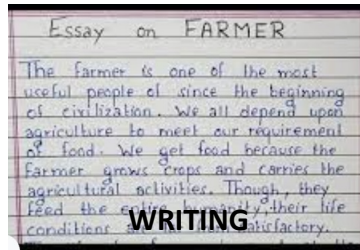 Essay on FARMER
The farmer is one of the most
useful people of since the beginning
of civilization. We all depend upon
agriculture to meet our requirement
of food. We get food because the
farmer grows crops and carries the
agricultural activities. Though, they
feed the entire humanity, their life
WRITING
conditions are satisfactory.